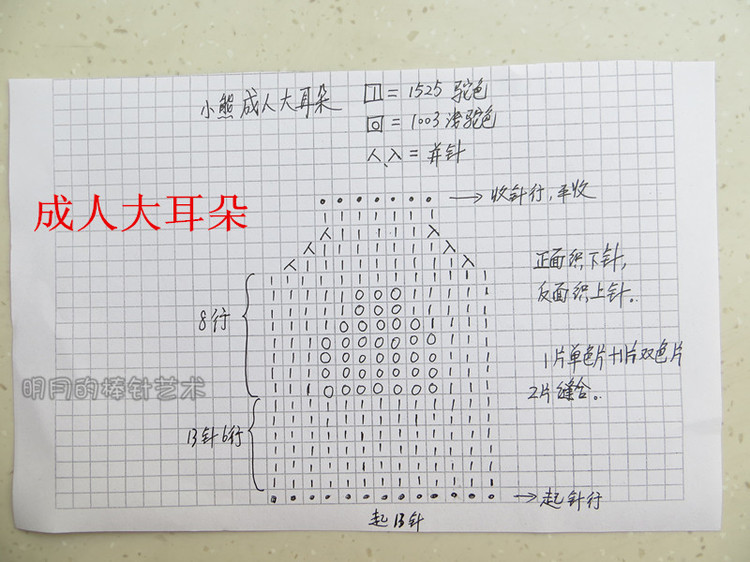 小熊成人大耳朵
| = 1525 驼色
o = 1003 浅驼色
人、入 = 并针
成人大耳朵
→收针行,平收
正面织下针,
反面织上针。
8行
1片单色片+1片双色片
2片缝合。
明月的棒针艺术
13针6行
→起针行
起13针